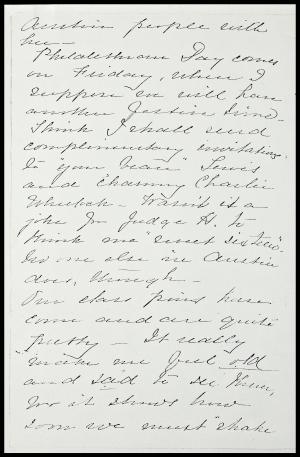 Austin people with
her —
Philalethean Day comes
on Friday, when I
suppose we will have
another festive time —
Think I shall send
complimentary invitations
to "your beau" Lewis
and Charming Charlie
— Wasn't it a
joke for Judge H. to
think me "sweet sixteen".
No one else in Austin
does, though —
Our class pins have
come and are quite
pretty — It really
makes me feel old
and sad to see them,
for it shows how
soon we must "shake